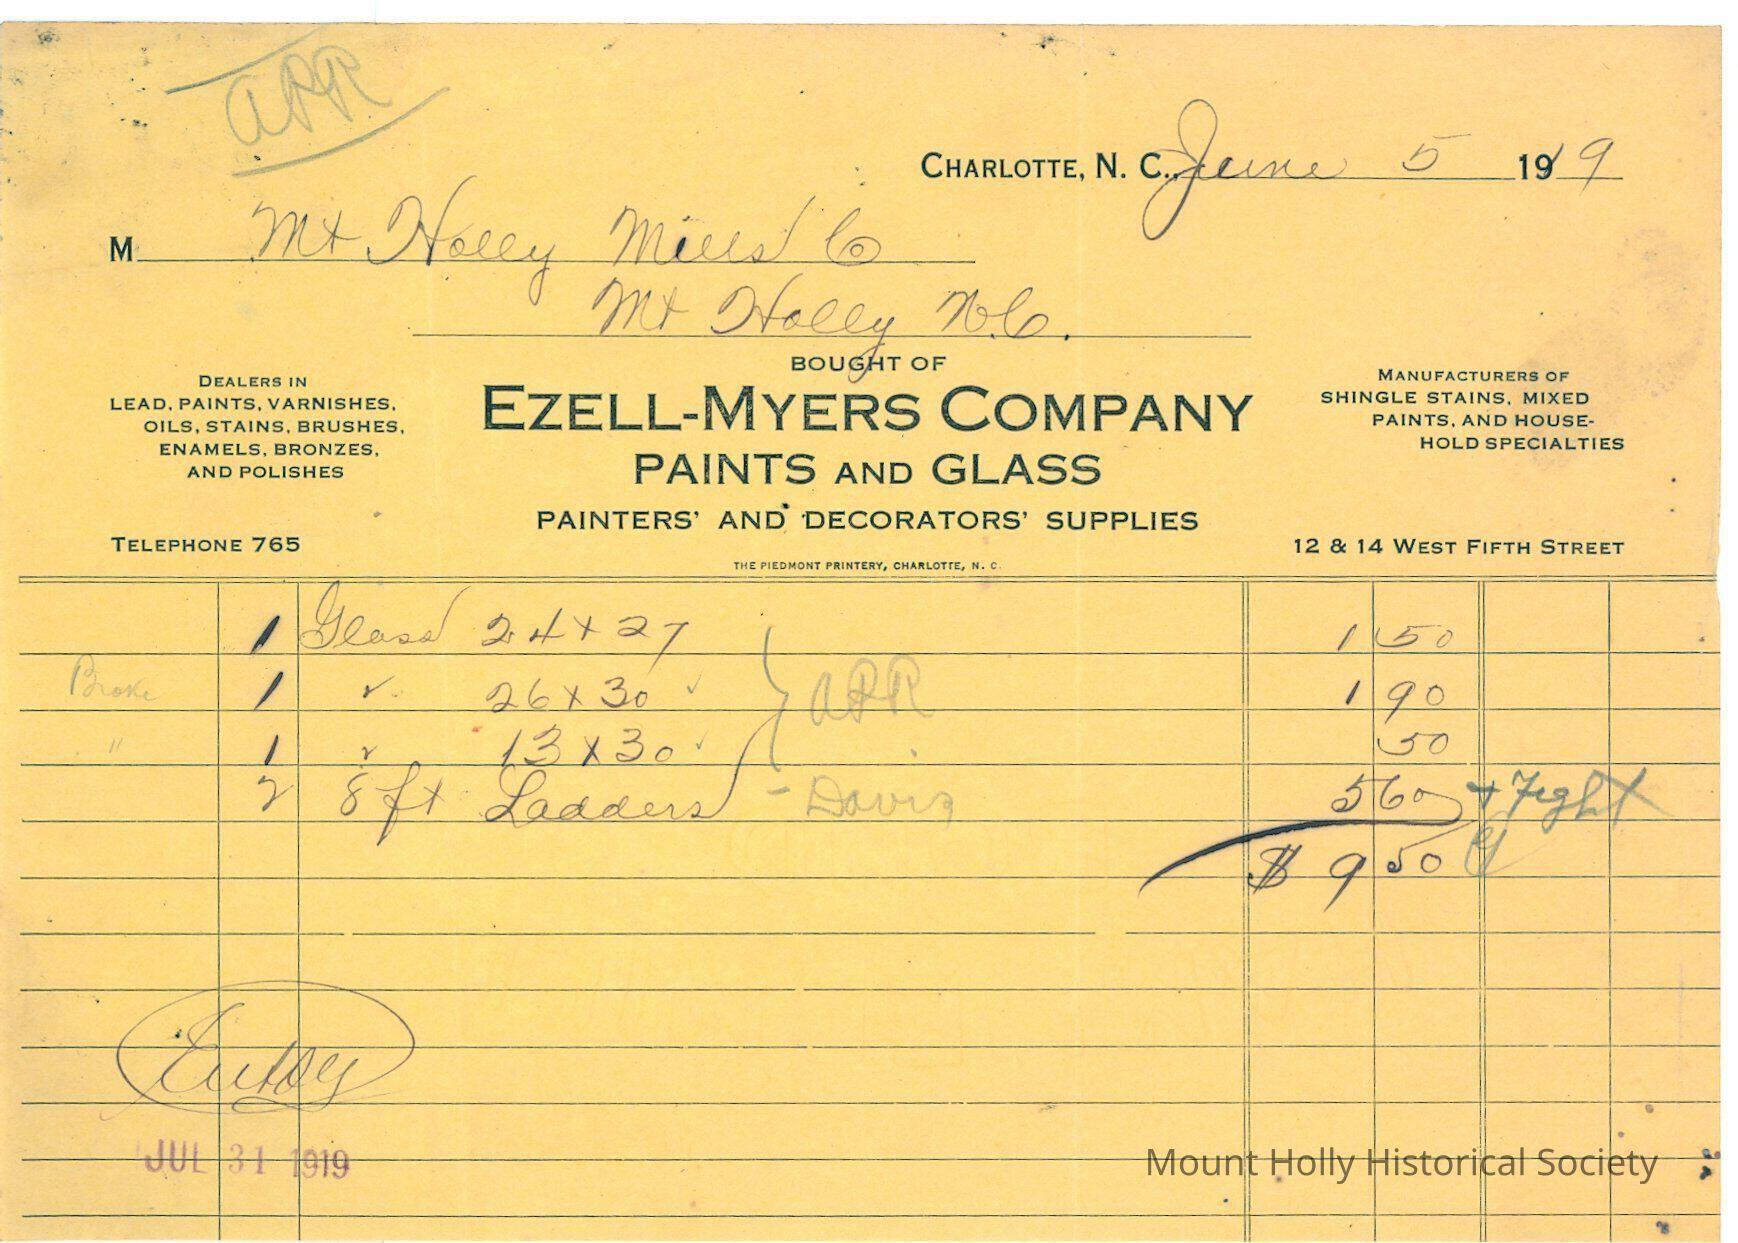 APR
CHARLOTTE, N. C., June 5 1919
M Mt Holly Mills Co
Mt Holly N.C.
BOUGHT OF
DEALERS IN
LEAD, PAINTS, VARNISHES,
OILS, STAINS, BRUSHES,
ENAMELS, BRONZES,
AND POLISHES
EZELL-MYERS COMPANY
PAINTS AND GLASS
PAINTERS' AND DECORATORS' SUPPLIES
MANUFACTURERS OF
SHINGLE STAINS, MIXED
PAINTS, AND HOUSE-
HOLD SPECIALTIES
TELEPHONE 765
12 & 14 WEST FIFTH STREET
THE PIEDMONT PRINTERY, CHARLOTTE, N. C.
1 Glass 24 x 27 1 50
Broke 1 " 26 x 30 ✓ APR 1 90
" 1 " 13 x 30 ✓ 50
2 8 ft Ladders - Davis 5 60
$ 9 50
JUL 31 1919
Mount Holly Historical Society